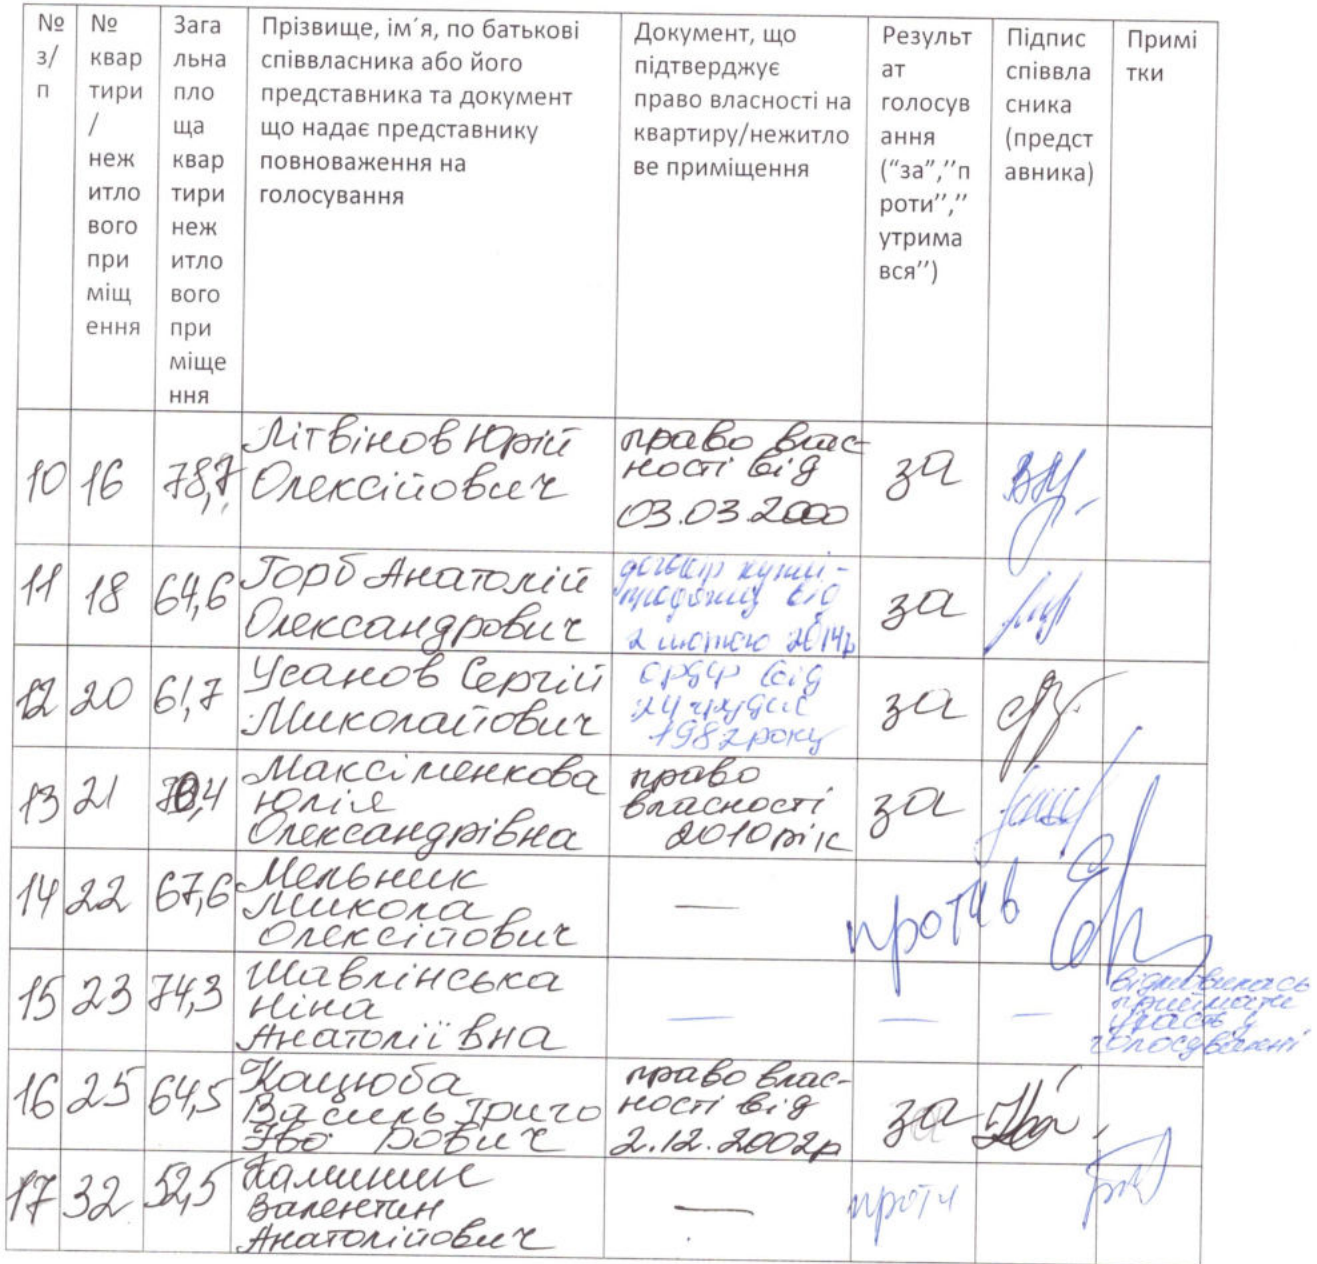 № з/п
№ квартири/нежитлового приміщення
Загальна площа квартири нежитлового приміщення
Прізвище, ім´я, по батькові
співвласника або його
представника та документ
що надає представнику
повноваження на
голосування
Документ, що
підтверджує
право власності на
квартиру/нежитло
ве приміщення
Результ
ат
голосув
ання
(“за”,’’п
роти’’,’’
утрима
вся’’)
Підпис
співвла
сника
(предст
авника)
Примі
тки
10 16 78,7
Літвінов Юрій
Олексійович
право влас-
ності від
03.03.2000
за
11 18 64,6
Горб Анатолій
Олександрович
договір купівлі-
продажу від
2 лютого 2014р
за
12 20 61,7
Усанов Сергій
Миколайович
від
24 грудня
1982 року
за
13 21
Максіменкова
Юлія
Олександрівна
право
власності
2010 рік
за
14 22 67,6
Мельник
Микола
Олексійович
—
против
15 23 74,3
Шавлінська
Ніна
Анатоліївна
— — —
відмовилась
приймати
участь у
голосуванні
16 25 64,5
Коцюба
Василь Григо
рович
право влас-
ності від
2.12.2002р
за
17 32 52,5
Калинин
Валентин
Анатолійович
—
проти